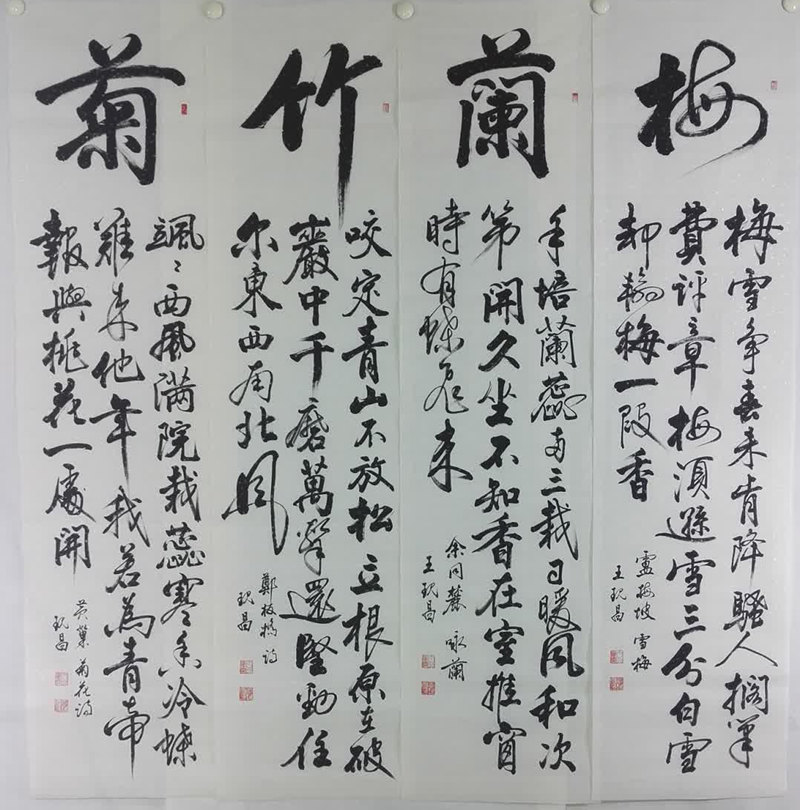 梅
梅雪争春未肯降騷人擱筆
費評章梅須遜雪三分白雪
却輸梅一段香
盧梅坡 雪梅
蘭
手培蘭蕊两三栽日暖风和次
第開久坐不知香在室推窗
時有蝶飛来
余同麓 咏蘭
竹
咬定青山不放松立根原在破
巖中千磨萬擊還堅勁任
尔東西南北风
鄭板橋詩
菊
颯〻西風滿院栽蕊寒香冷蝶
難来他年我若為青帝
報與桃花一處開
黄巢 菊花詩